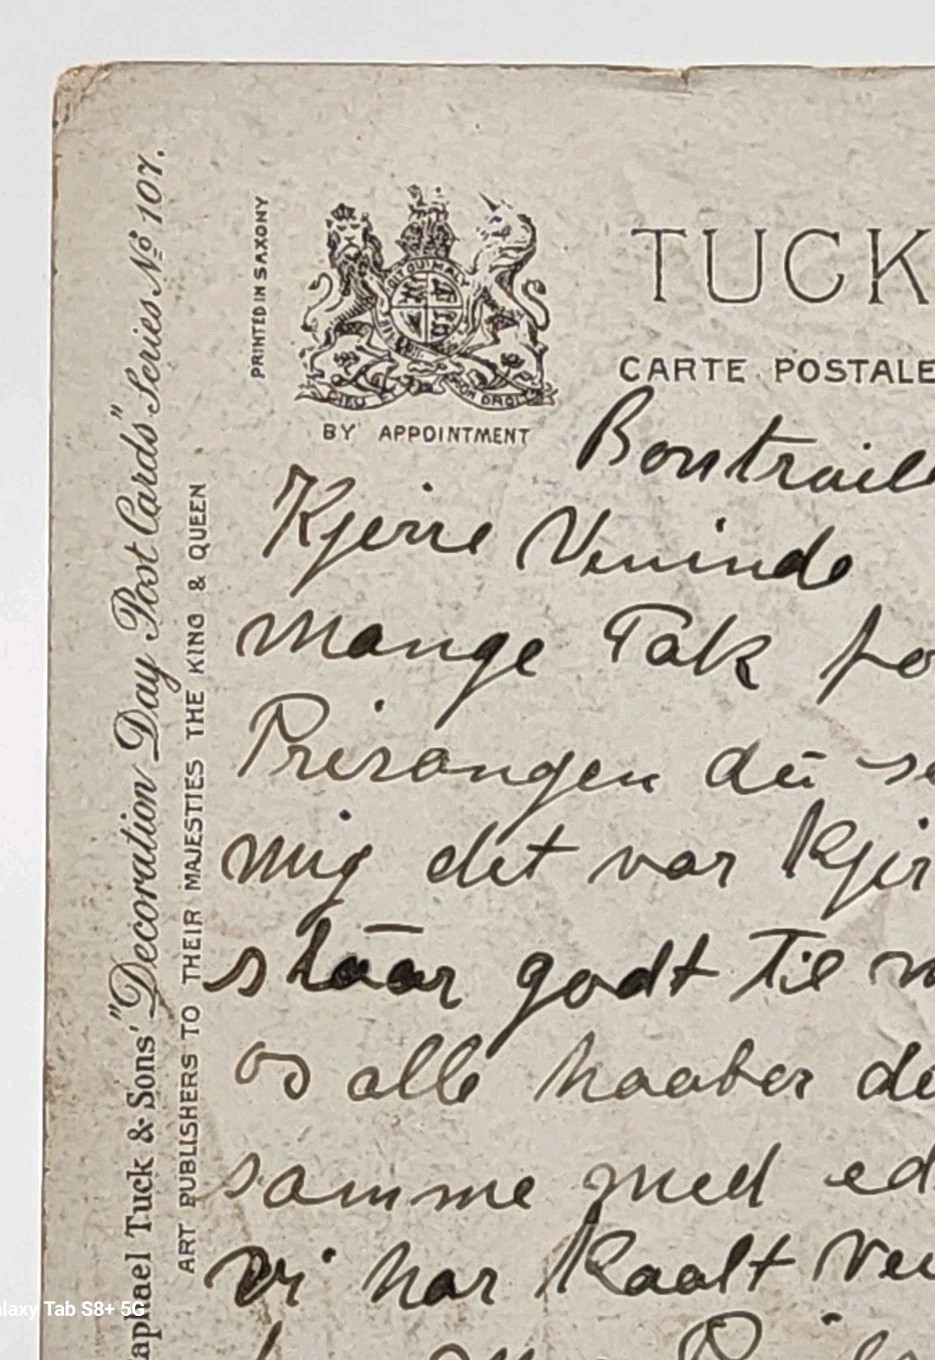 Raphael Tuck & Sons' "Decoration Day Post Cards" Series № 107.
ART PUBLISHERS TO THEIR MAJESTIES THE KING & QUEEN
PRINTED IN SAXONY
DIEU DROIT
BY APPOINTMENT
TUCK
CARTE POSTALE
Kjerre Veninde
mange Tak fo
du se
mig det var Kjer
staar godt Til m
os alle haaber de
samme med ed
vi har Kaalt Vei
Galaxy Tab S8+ 5G